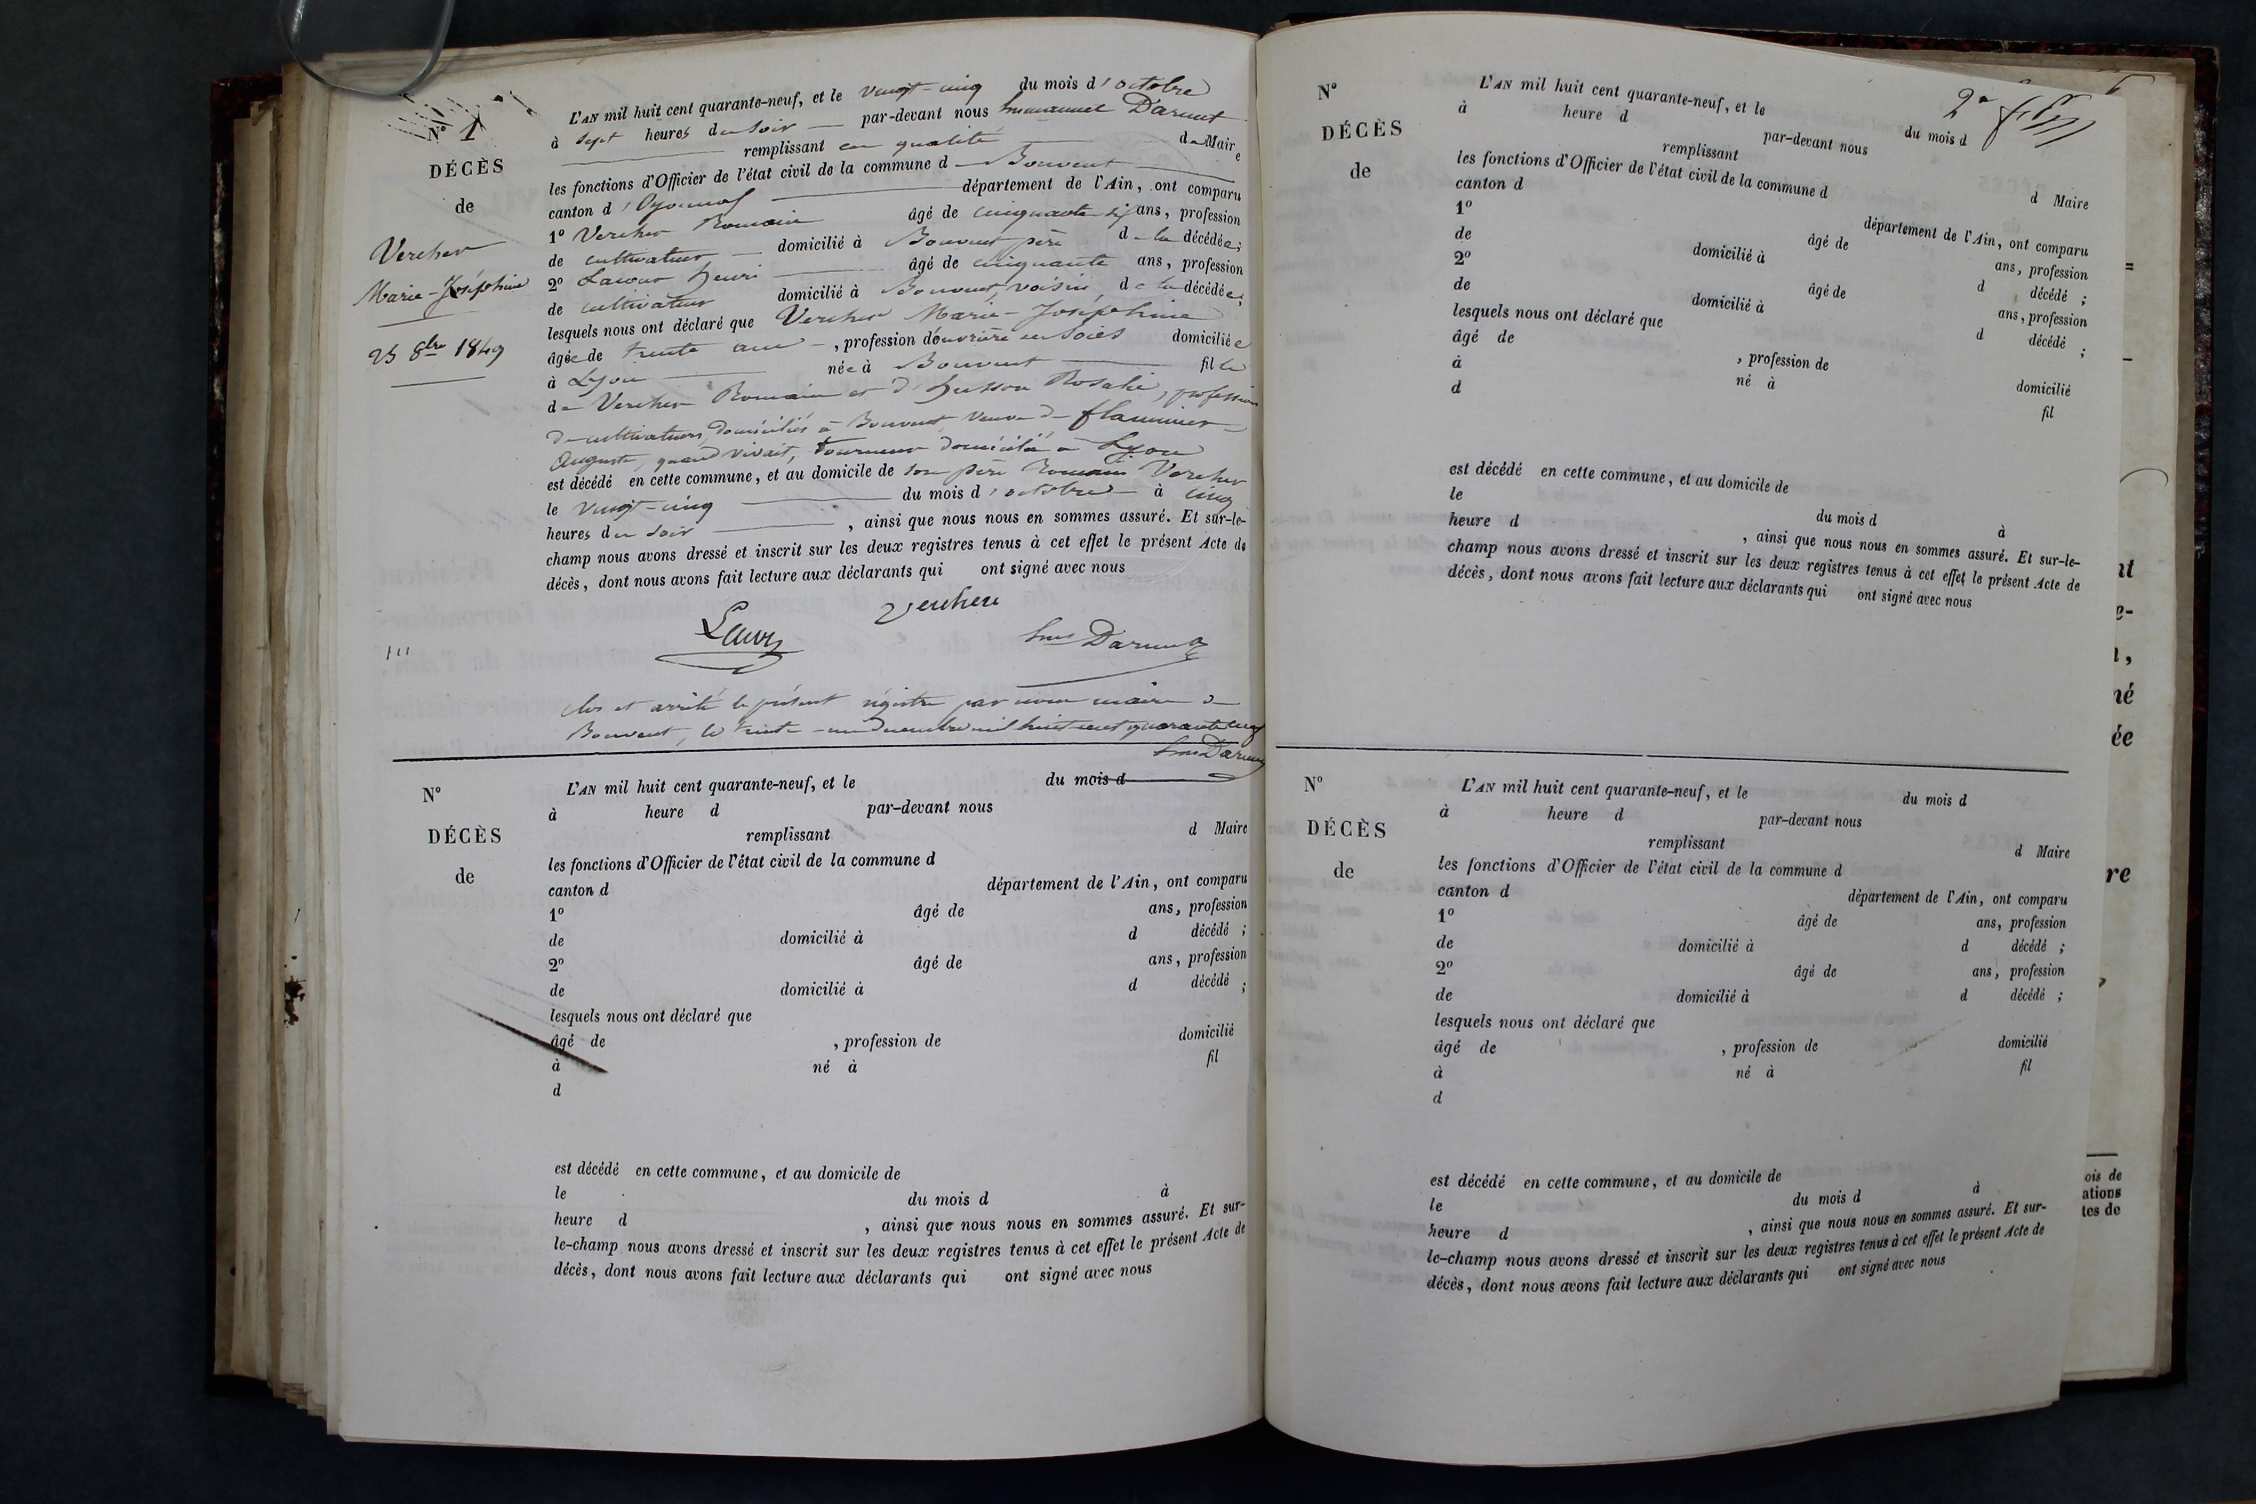 N° 1
DÉCÈS
de
Vercher
Marie-Joséphine
25 8bre 1849
L'AN mil huit cent quarante-neuf, et le vingt-cinq du mois d'octobre
à sept heures du soir par-devant nous Emmanuel Darmet
remplissant en qualité de Maire
les fonctions d'Officier de l'état civil de la commune de Bouvent
canton d'Oyonnax département de l'Ain, ont comparu
1° Vercher Romain âgé de cinquante six ans, profession
de cultivateur domicilié à Bouvent père de la décédée;
2° Lacour henri âgé de cinquante ans, profession
de cultivateur domicilié à Bouvent, voisin de la décédée;
lesquels nous ont déclaré que Vercher Marie-Joséphine
âgée de trente ans, profession d'ouvrière en soies domiciliée
à Lyon née à Bouvent fille
de Vercher Romain et d' husson Rosalie, profession
de cultivateurs, domiciliés à Bouvent, veuve de flammier
Auguste, quand vivait, tourneur domicilié à Lyon
est décédé en cette commune, et au domicile de son père Romain Vercher
le vingt-cinq du mois d'octobre à cinq
heures du soir, ainsi que nous nous en sommes assuré. Et sur-le-
champ nous avons dressé et inscrit sur les deux registres tenus à cet effet le présent Acte de
décès, dont nous avons fait lecture aux déclarants qui ont signé avec nous
Verchere
Darmet
clos et arrêté le présent régistre par nous maire de
Bouvent, le trente-un décembre mil huit cent quarante neuf
Darmet
N°
DÉCÈS
de
L'AN mil huit cent quarante-neuf, et le du mois d
à heure d par-devant nous
remplissant d Maire
les fonctions d'Officier de l'état civil de la commune d
canton d département de l'Ain, ont comparu
1° âgé de ans, profession
de domicilié à d décédé ;
2° âgé de ans, profession
de domicilié à d décédé ;
lesquels nous ont déclaré que
âgé de , profession de domicilié
à né à fil
d
est décédé en cette commune, et au domicile de
le du mois d à
heure d , ainsi que nous nous en sommes assuré. Et sur-
le-champ nous avons dressé et inscrit sur les deux registres tenus à cet effet le présent Acte de
décès, dont nous avons fait lecture aux déclarants qui ont signé avec nous
N°
DÉCÈS
de
L'AN mil huit cent quarante-neuf, et le du mois d
à heure d par-devant nous
remplissant d Maire
les fonctions d'Officier de l'état civil de la commune d
canton d département de l'Ain, ont comparu
1° âgé de ans, profession
de domicilié à d décédé ;
2° âgé de ans, profession
de domicilié à d décédé ;
lesquels nous ont déclaré que
âgé de , profession de domicilié
à né à fil
d
est décédé en cette commune, et au domicile de
le du mois d à
heure d , ainsi que nous nous en sommes assuré. Et sur-le-
champ nous avons dressé et inscrit sur les deux registres tenus à cet effet le présent Acte de
décès, dont nous avons fait lecture aux déclarants qui ont signé avec nous
N°
DÉCÈS
de
L'AN mil huit cent quarante-neuf, et le du mois d
à heure d par-devant nous
remplissant d Maire
les fonctions d'Officier de l'état civil de la commune d
canton d département de l'Ain, ont comparu
1° âgé de ans, profession
de domicilié à d décédé ;
2° âgé de ans, profession
de domicilié à d décédé ;
lesquels nous ont déclaré que
âgé de , profession de domicilié
à né à fil
d
est décédé en cette commune, et au domicile de
le du mois d à
heure d , ainsi que nous nous en sommes assuré. Et sur-
le-champ nous avons dressé et inscrit sur les deux registres tenus à cet effet le présent Acte de
décès, dont nous avons fait lecture aux déclarants qui ont signé avec nous
ois de
ations
tes de